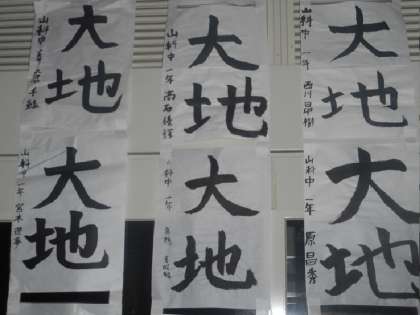 大地
山科中 一年
大地
山科中 一年 高石
大地
山科中 一年 西川昂樹
大地
山科中 一年 宮本
大地
山科中 一年
大地
山科中 一年 原昌秀